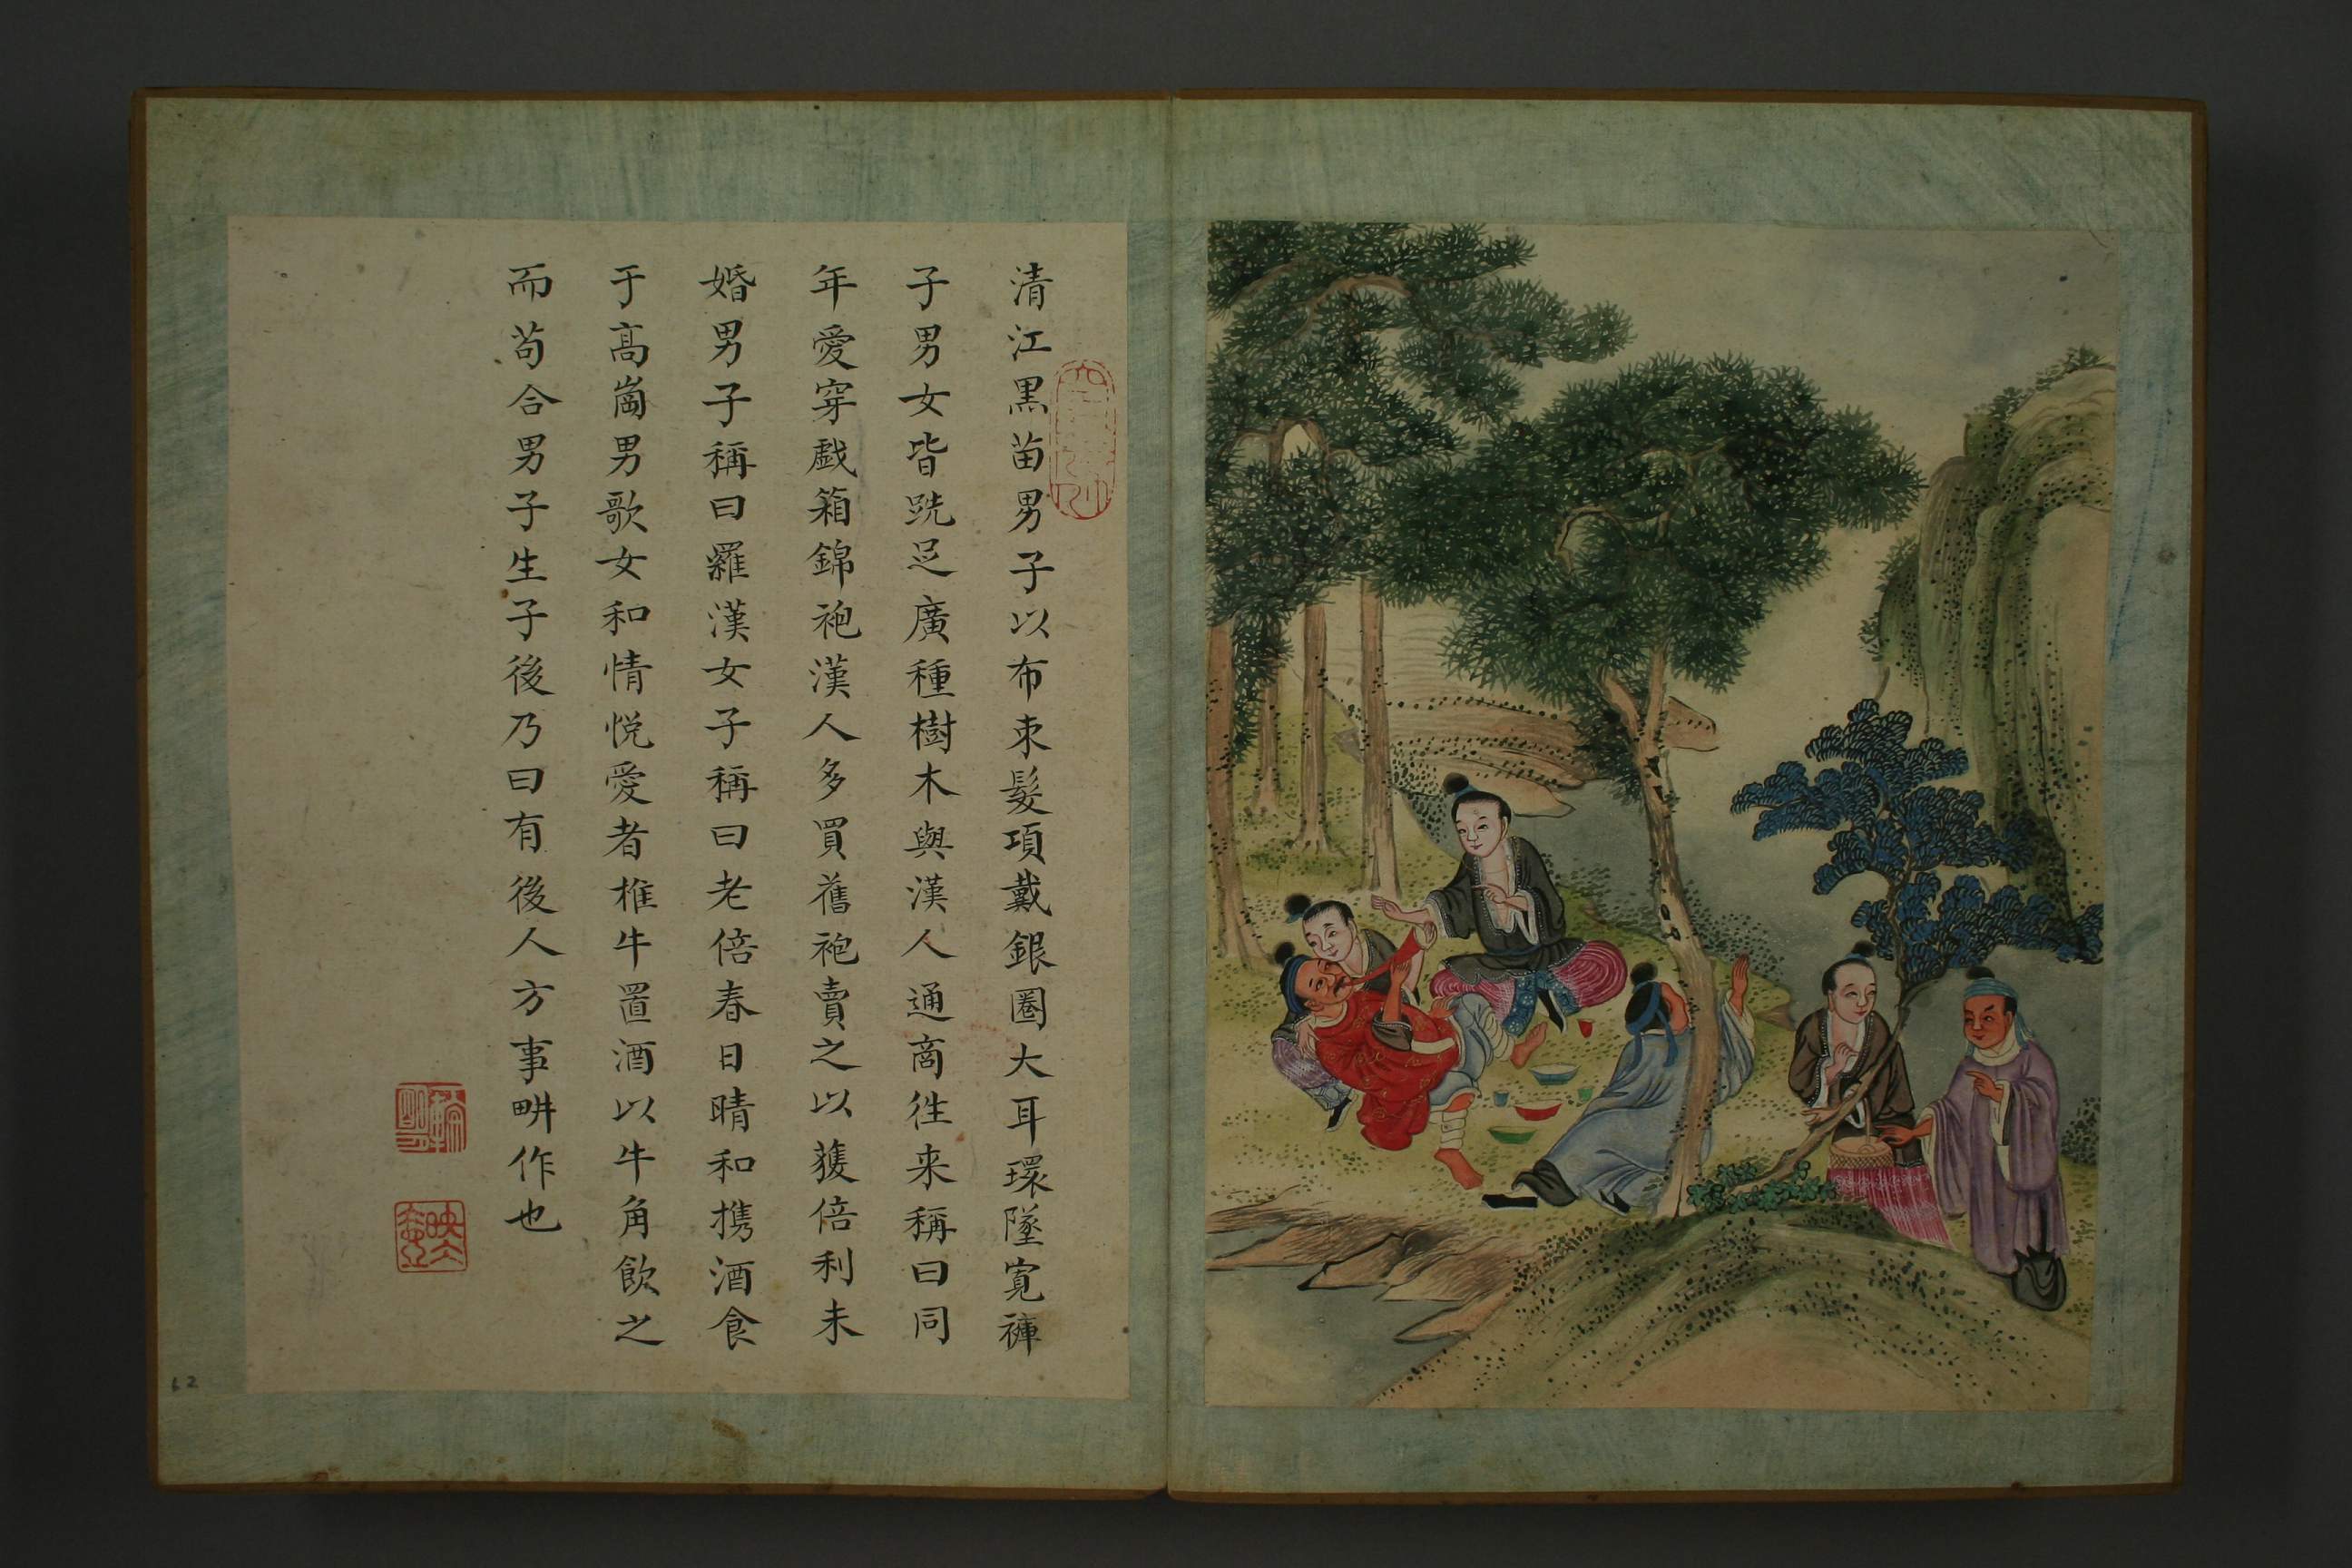 清江黒苗男子以布束髮項戴銀圈大耳環墜寬褲
子男女皆跣足廣種樹木與漢人通商徃来稱曰同
年愛穿戯箱錦袍漢人多買舊袍賣之以獲倍利未
婚男子稱曰羅漢女子稱曰老倍春日晴和携酒食
于高崗男歌女和情悦愛者椎牛置酒以牛角飲之
而苟合男子生子後乃曰有後人方事畊作也
62